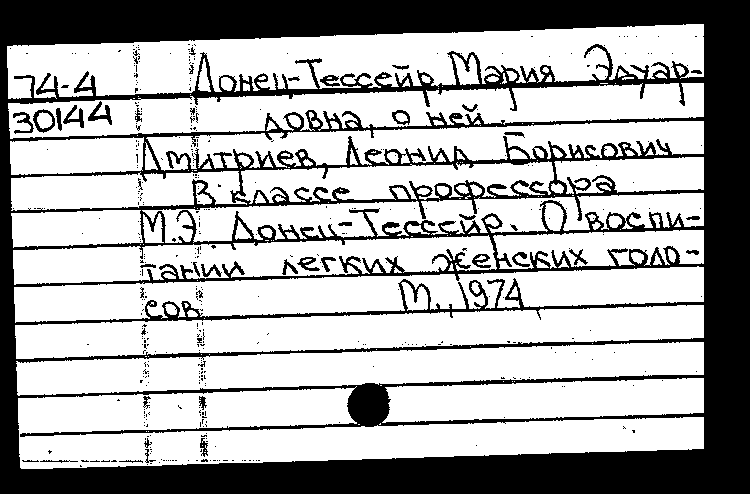 74-4 Донец-Тессейр, Мария Эдуар-
30144 довна, о ней.
Дмитриев, Леонид Борисович
В классе профессора
М.Э. Донец-Тессейр. О воспи-
тании легких женских голо-
сов М., 1974